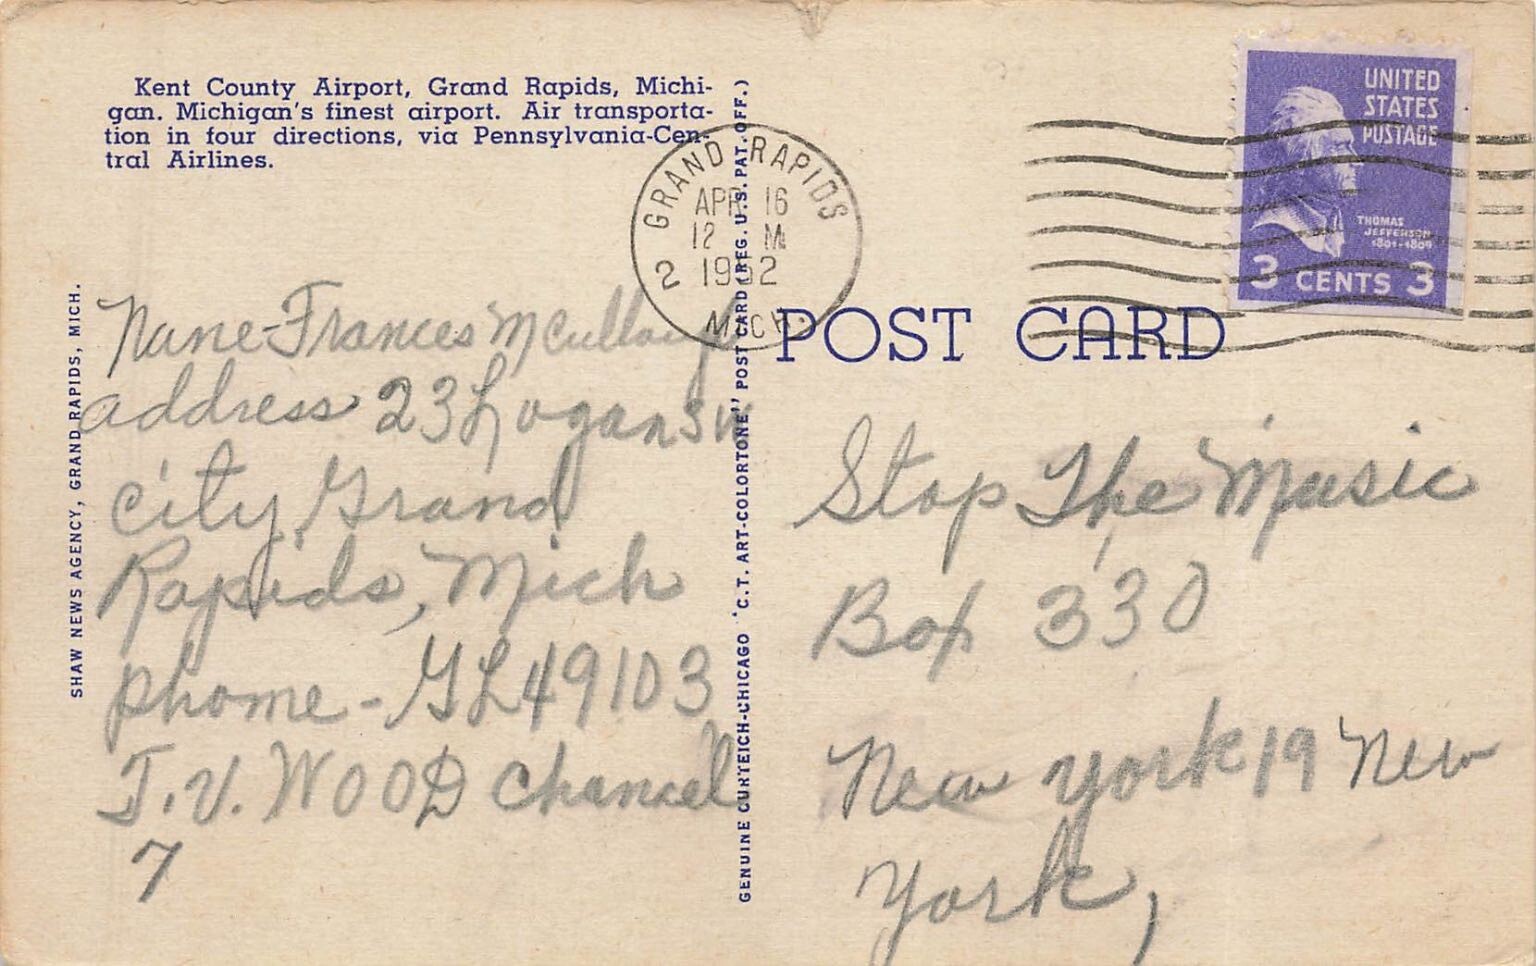 Kent County Airport, Grand Rapids, Michi-
gan. Michigan's finest airport. Air transporta-
tion in four directions, via Pennsylvania-Cen-
tral Airlines.
SHAW NEWS AGENCY, GRAND RAPIDS, MICH.
Name-Frances McCullough
address 23 Logan SW
city Grand
Rapids, Mich
phone - GL49103
T.V. WOOD Channel
7
GENUINE CURTEICH-CHICAGO "C.T. ART-COLORTONE" POST CARD (REG. U.S. PAT. OFF.)
GRAND RAPIDS
APR 16
12 M
2 1952
MICH.
UNITED
STATES
POSTAGE
THOMAS
JEFFERSON
1801-1809
3 CENTS 3
POST CARD
Stop The Music
Box 330
New York 19 New
York,